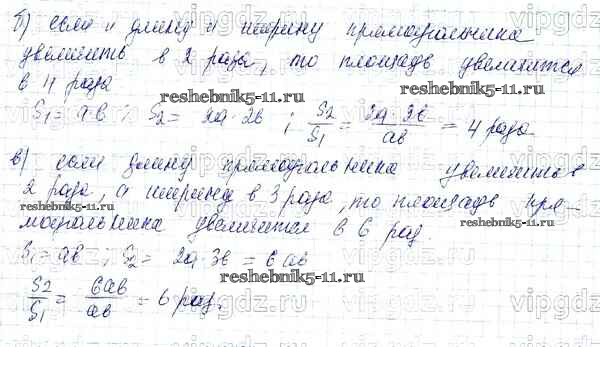 б) если и длину и ширину прямоугольника
увеличить в 2 раза, то площадь увеличится
в 4 раза
S₁ = a·b ; S₂ = 2a·2b ; S₂/S₁ = 2a·2b/ab = 4 раза
в) если длину прямоугольника увеличить в
2 раза, а ширину в 3 раза, то площадь пря-
моугольника увеличится в 6 раз.
S₁ = ab ; S₂ = 2a·3b = 6ab
S₂/S₁ = 6ab/ab = 6 раз.
reshebnik5-11.ru
reshebnik5-11.ru
reshebnik5-11.ru
reshebnik5-11.ru
reshebnik5-11.ru
vipgdz.ru